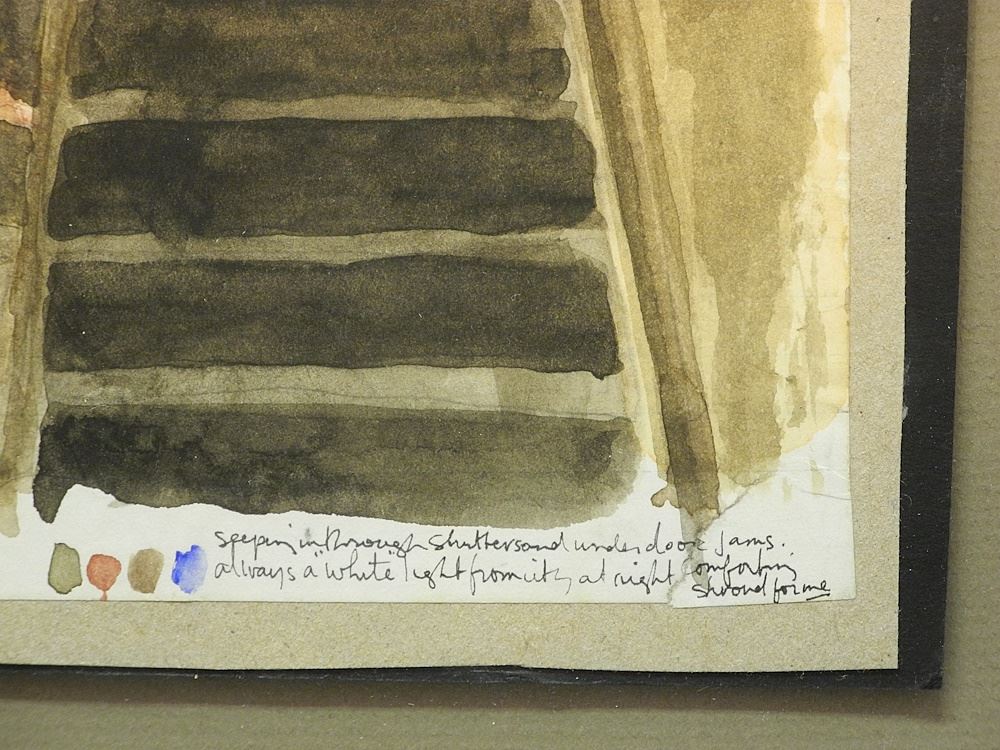 seeping in through shutters and under door jams.
always a "white" light from city at night comforting
shroud for me